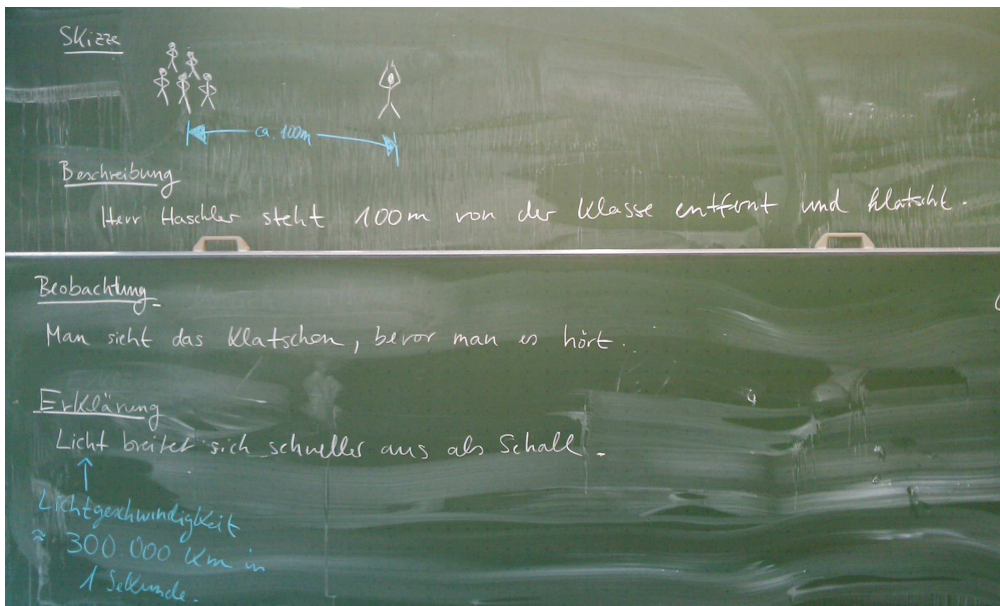 Skizze
ca. 100m
Beschreibung
Herr Haschler steht 100m von der Klasse entfernt und klatscht.
Beobachtung
Man sieht das Klatschen, bevor man es hört.
Erklärung
Licht breitet sich schneller aus als Schall.
Lichtgeschwindigkeit
≈ 300.000 km in
1 Sekunde.